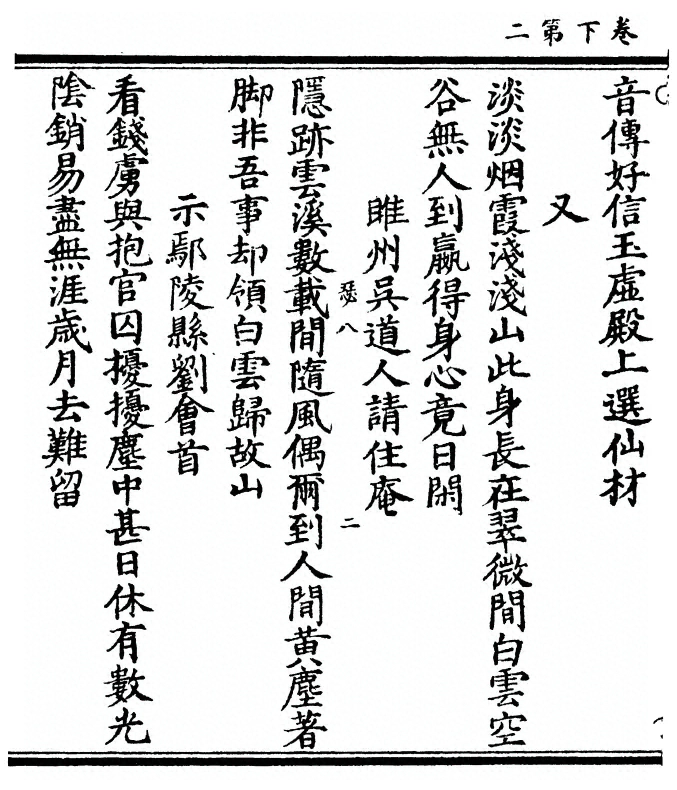 卷下第二
音傳好信玉虛殿上選仙材
又
淡淡烟霞淺淺山此身長在翠微間白雲空
谷無人到贏得身心竟日閑
睢州吳道人請住庵
瑟八
二
隱跡雲溪數載間隨風偶爾到人間黄塵著
脚非吾事却領白雲歸故山
示鄢陵縣劉會首
看錢虜與抱官囚擾擾塵中甚日休有數光
陰銷易盡無涯歲月去難留